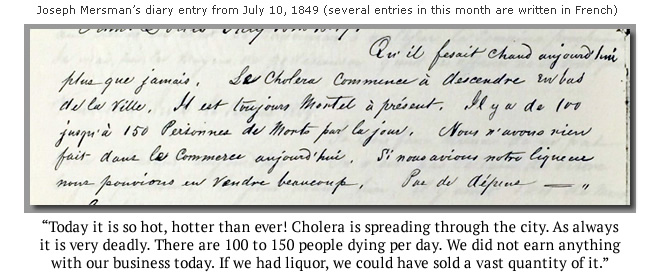 Joseph Mersman's diary entry from July 10, 1849 (several entries in this month are written in French)
Qu'il fesait chaud aujourd'hui
plus que jamais. Le Cholera commence à descendre en bas
de la Ville. Il est toujours Mortel à présent. Il y a de 100
jusqu'à 150 Personnes de Morts par la jour. Nous n'avons rien
fait dans le Commerce aujourd'hui. Si nous avions notre liqueur
nous pouvions en vendre beaucoup. Pas de dépens — "
“Today it is so hot, hotter than ever! Cholera is spreading through the city. As always
it is very deadly. There are 100 to 150 people dying per day. We did not earn anything
with our business today. If we had liquor, we could have sold a vast quantity of it.”